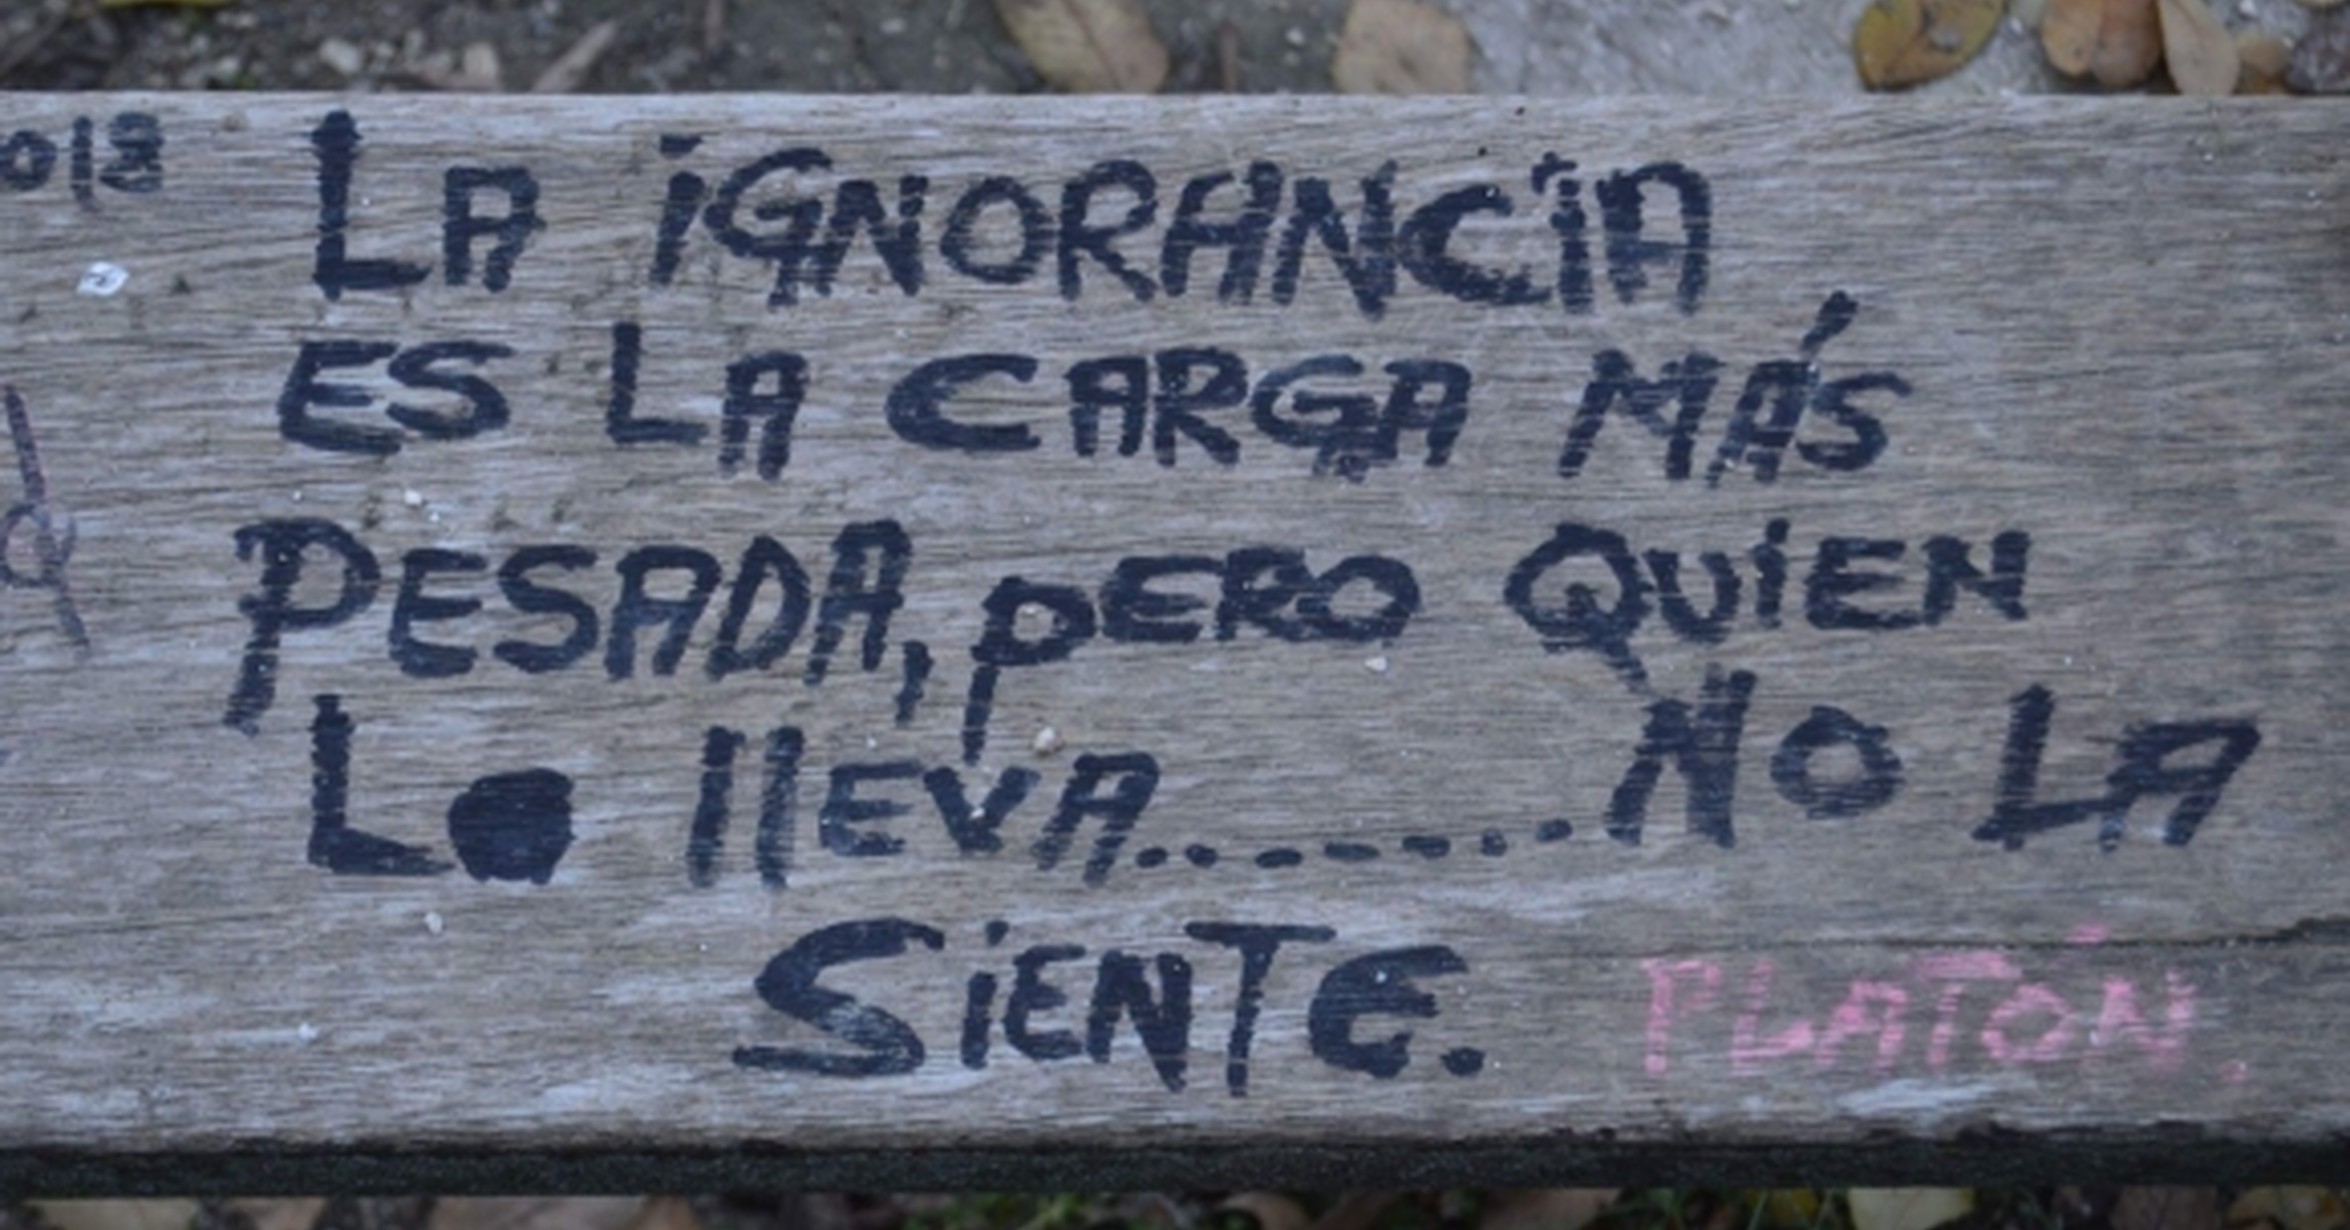 018
LA iGNORANCiA
ES LA CARGA MÁS
PESADA, pERO QUiEN
L● llEVA........NO LA
SiENTE. PLATÓN.